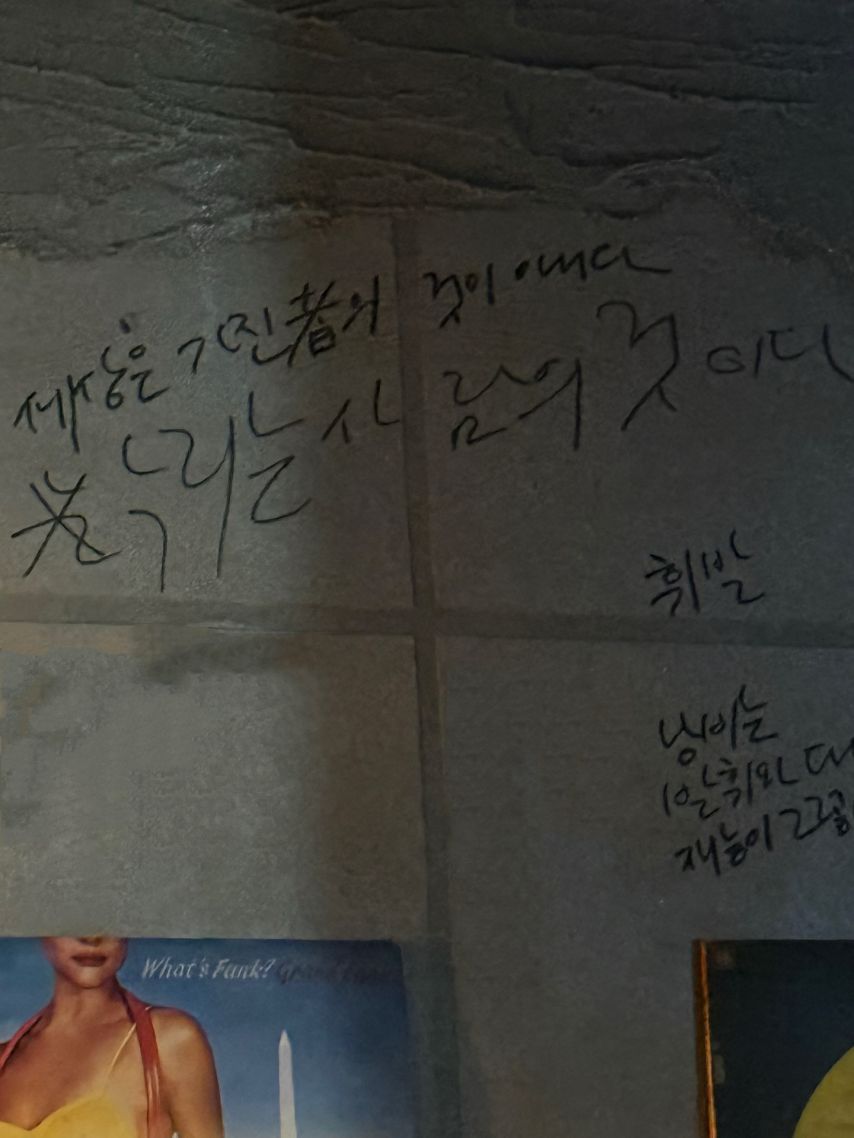 세상은 가진者의 것이 아니다
누리는사람의 것이다
휘발
낭비는
재능이
What's Funk?